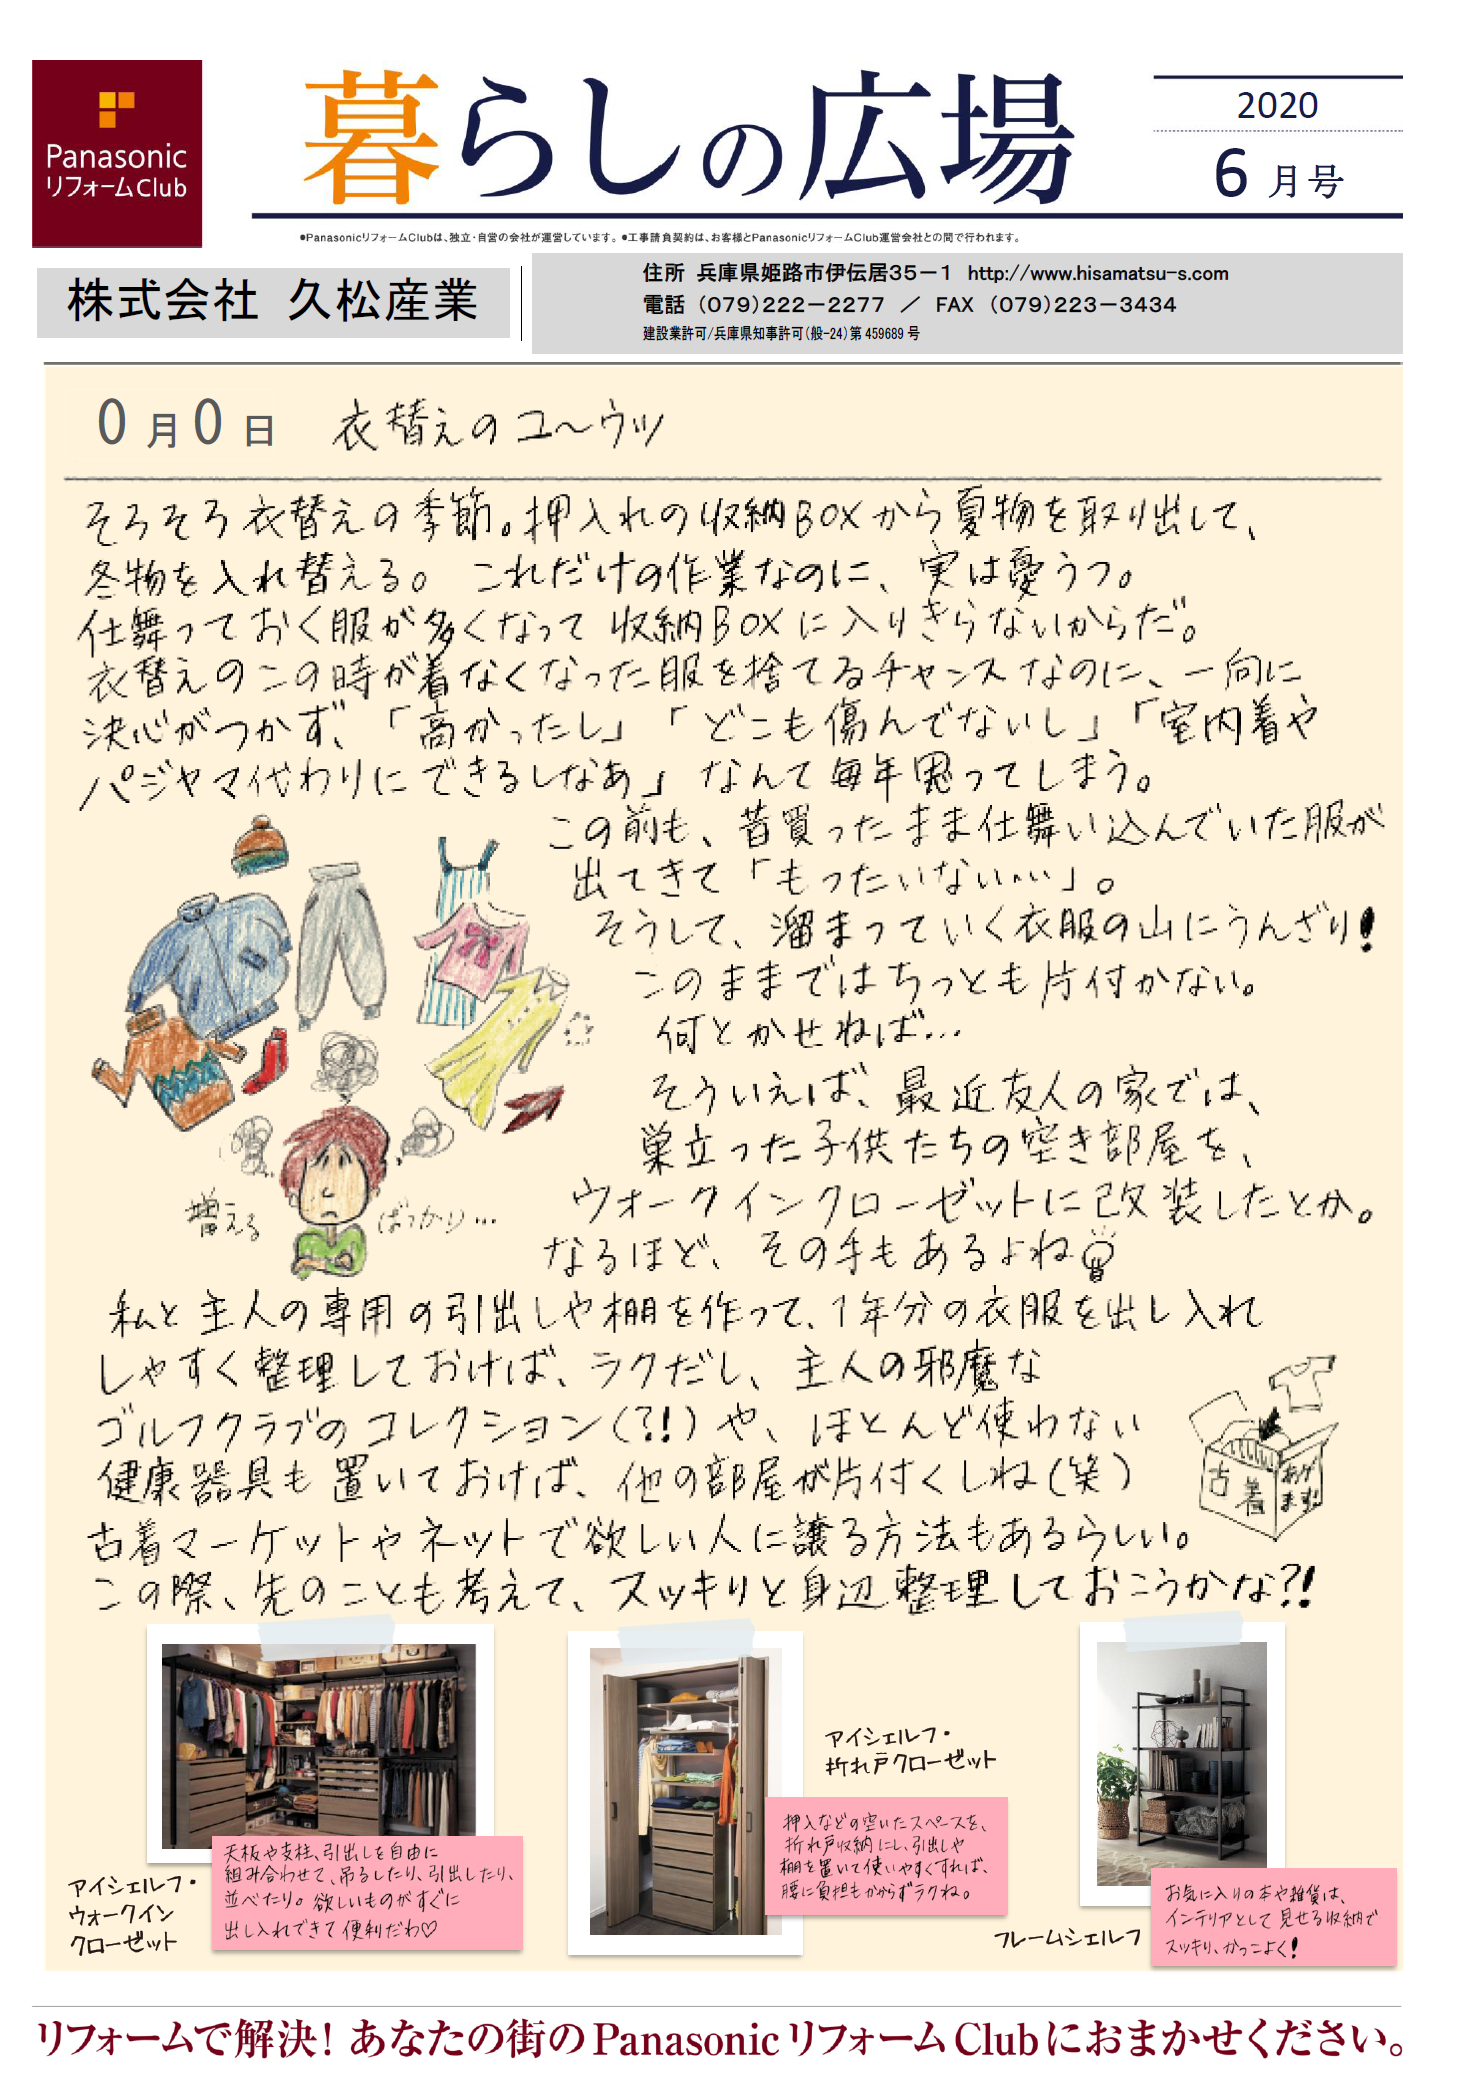 Panasonic
リフォームClub
暮らしの広場
2020
6 月号
●PanasonicリフォームClubは、独立・自営の会社が運営しています。●工事請負契約は、お客様とPanasonicリフォームClub運営会社との間で行われます。
株式会社 久松産業
住所 兵庫県姫路市伊伝居35－1 http://www.hisamatsu-s.com
電話 (079)222－2277 ／ FAX (079)223－3434
建設業許可/兵庫県知事許可(般-24)第 459689 号
0 月 0 日 衣替えのユ～ウツ
そろそろ衣替えの季節。押入れの収納BOXから夏物を取り出して、
冬物を入れ替える。これだけの作業なのに、実は憂うつ。
仕舞っておく服が多くなって収納BOXに入りきらないからだ。
衣替えのこの時が着なくなった服を捨てるチャンスなのに、一向に
決心がつかず、「高かったし」「どこも傷んでないし」「室内着や
パジャマ代わりにできるしなあ」なんて毎年思ってしまう。
この前も、昔買ったまま仕舞い込んでいた服が
出てきて「もったいない…」。
そうして、溜まっていく衣服の山にうんざり!
このままではちっとも片付かない。
何とかせねば…
そういえば、最近友人の家では、
巣立った子供たちの空き部屋を、
ウォークインクローゼットに改装したとか。
なるほど、その手もあるよね
増える ばっかり…
私と主人の専用の引出しや棚を作って、1年分の衣服を出し入れ
しやすく整理しておけば、ラクだし、主人の邪魔な
ゴルフクラブのコレクション(?!)や、ほとんど使わない
健康器具も置いておけば、他の部屋が片付くしね(笑)
古着マーケットやネットで欲しい人に譲る方法もあるらしい。
この際、先のことも考えて、スッキリと身辺整理しておこうかな?!
古着
あげます!
アイシェルフ・
ウォークイン
クローゼット
天板や支柱、引出しを自由に
組み合わせて、吊るしたり、引出したり、
並べたり。欲しいものがすぐに
出し入れできて便利だわ♡
アイシェルフ・
折れ戸クローゼット
押入などの空いたスペースを、
折れ戸収納にし、引出しや
棚を置いて使いやすくすれば、
腰に負担もかからずラクね。
フレームシェルフ
お気に入りの本や雑貨は、
インテリアとして見せる収納で
スッキリ、かっこよく!
リフォームで解決! あなたの街のPanasonicリフォームClubにおまかせください。